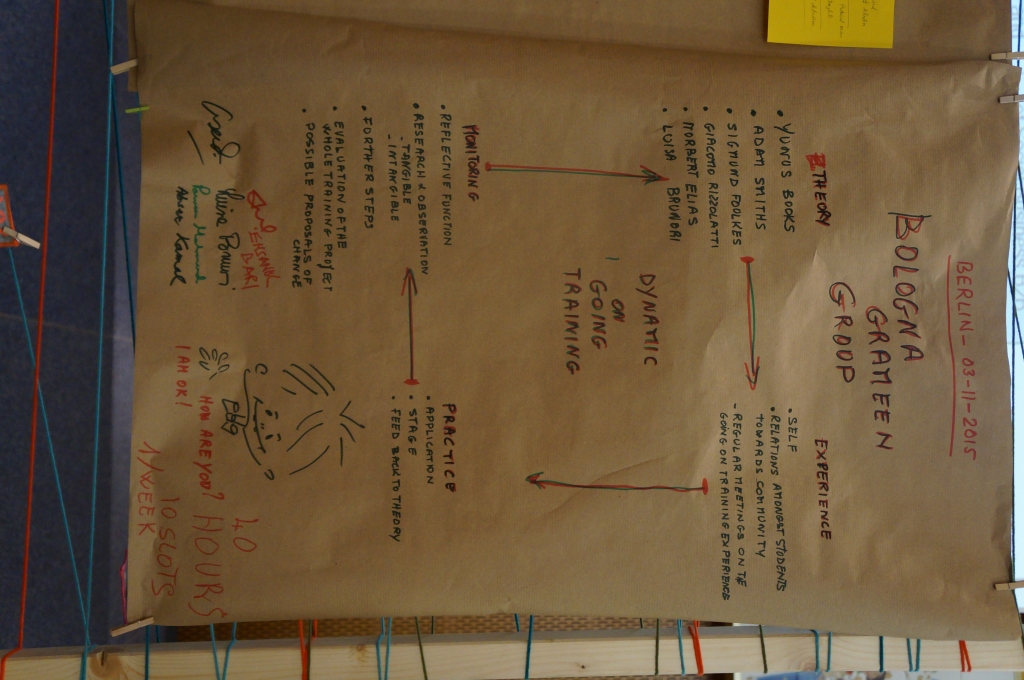 BERLIN - 03-11-2015
BOLOGNA
GRAMEEN
GROUP
THEORY
• YUNUS BOOKS
• ADAM SMITHS
• SIGMUND FOULKES
• GIACOMO RIZZOLATTI
• NORBERT ELIAS
• LUISA BRUNORI
EXPERIENCE
• SELF
• RELATIONS AMONGST STUDENTS
TOWARDS COMMUNITY
- REGULAR MEETINGS ON THE
GOING ON TRAINING EXPERIENCE
DYNAMIC
ON
GOING
TRAINING
MONITORING
• REFLECTIVE FUNCTION
• RESEARCH & OBSERVATION
- TANGIBLE
- INTANGIBLE
• FURTHER STEPS
• EVALUATION OF THE
WHOLE TRAINING PROJECT
• POSSIBLE PROPOSALS OF
CHANGE
PRACTICE
• APPLICATION
• STAGE
• FEED BACK TO THEORY
BARI
Abeer Kamal
HOW ARE YOU?
I AM OK!
40
HOURS
10 SLOTS
1/WEEK